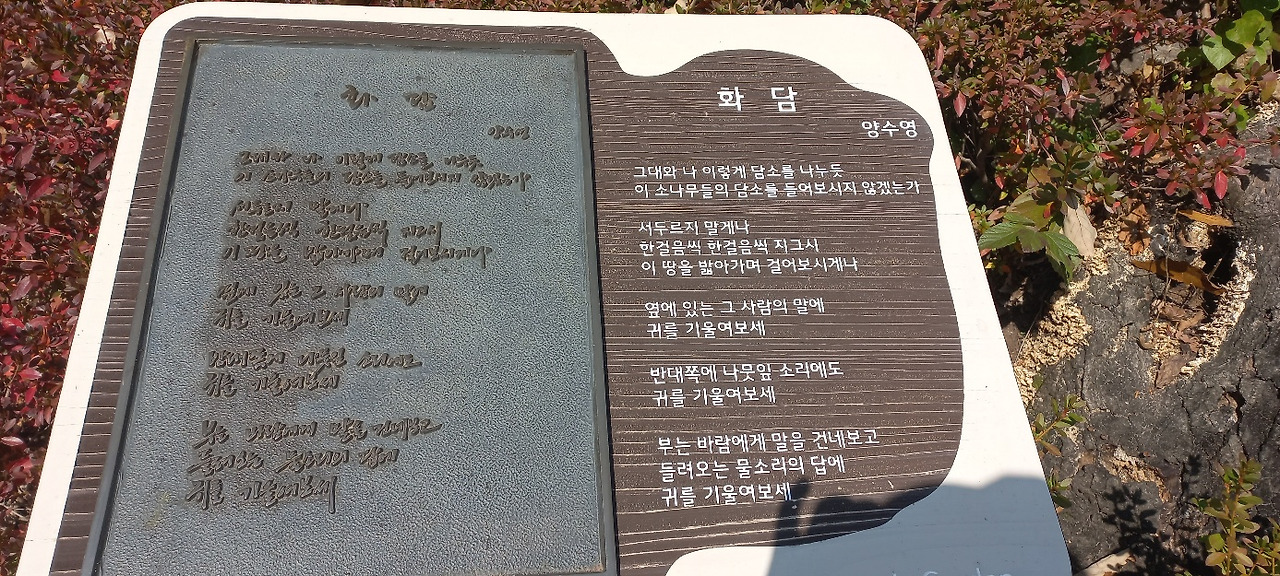 화 담
양수영
그대와 나 이렇게 담소를 나누듯
이 소나무들의 담소를 들어보시지 않겠는가
서두르지 말게나
한걸음씩 한걸음씩 지그시
이 땅을 밟아가며 걸어보시게나
옆에 있는 그 사람의 말에
귀를 기울여보세
반대쪽에 나뭇잎 소리에도
귀를 기울여보세
부는 바람에게 말을 건네보고
들려오는 물소리의 답에
귀를 기울여보세
화 담
양수영
그대와 나 이렇게 담소를 나누듯
이 소나무들의 담소를 들어보시지 않겠는가
서두르지 말게나
한걸음씩 한걸음씩 지그시
이 땅을 밟아가며 걸어보시게나
옆에 있는 그 사람의 말에
귀를 기울여보세
반대쪽에 나뭇잎 소리에도
귀를 기울여보세
부는 바람에게 말을 건네보고
들려오는 물소리의 답에
귀를 기울여보세